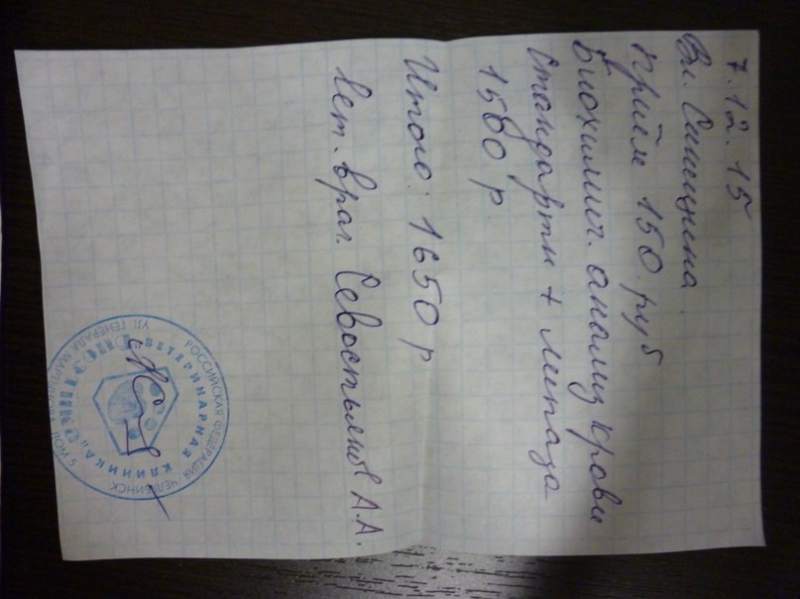 7.12.15
Вл. Синицина
Приём 150 руб
Биохимич. анализ крови
Стандартн + липаза
1500 р
Итого: 1650 р
Вет. врач. Севостьянов А.А.
РОССИЙСКАЯ ФЕДЕРАЦИЯ ЧЕЛЯБИНСК
УЛ. ГЕНЕРАЛА
ВЕТЕРИНАРНАЯ КЛИНИКА